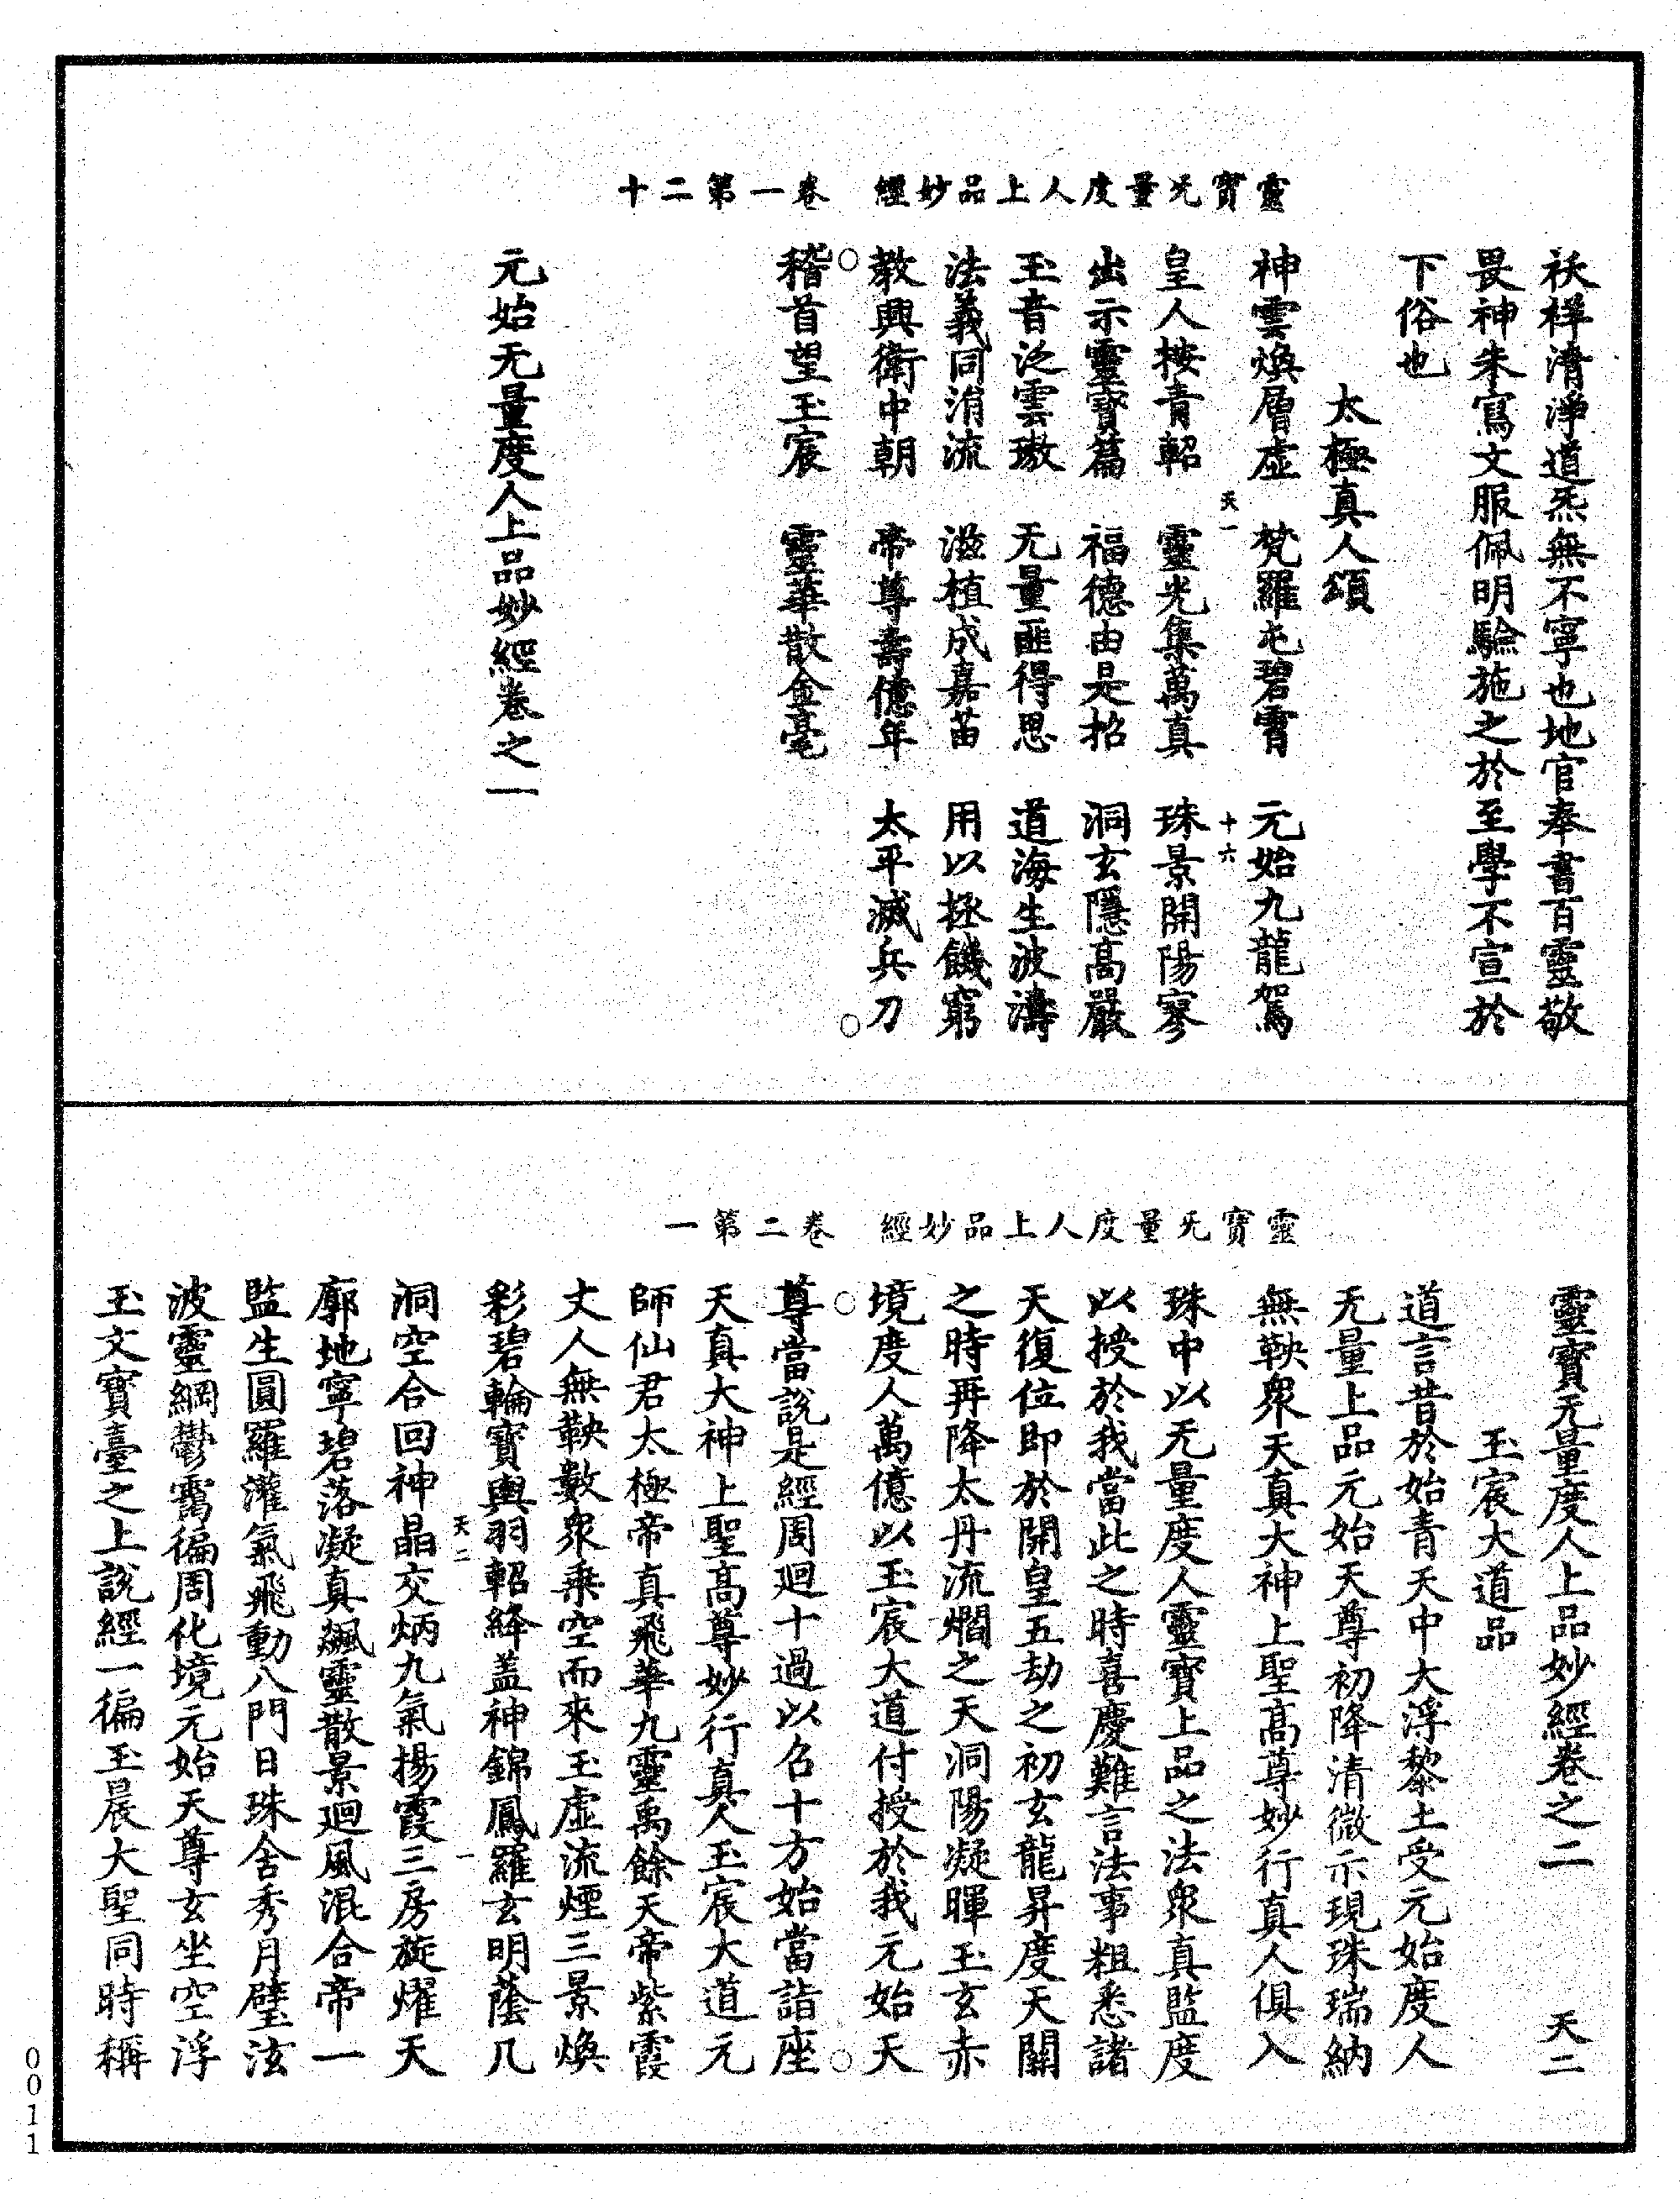 靈寶无量度人上品妙經　卷一第二十
祅祥清淨道炁無不寧也地官奉書百靈敬
畏神朱寫文服佩明驗施之於至學不宣於
下俗也
太極真人頌
神雲煥層虛　梵羅屯碧霄　元始九龍駕
天一　十六
皇人按青軺　靈光集萬真　珠景開陽寥
出示靈寶篇　福德由是招　洞玄隱高嚴
玉音泛雲璈　无量匪得思　道海生波濤
法義同消流　滋植成嘉苗　用以拯饑窮
教興衛中朝　帝尊壽億年　太平滅兵刀
稽首望玉宸　靈華散金毫
元始无量度人上品妙經卷之一
靈寶无量度人上品妙經　卷二第一
靈寶无量度人上品妙經卷之二　天二
玉宸大道品
道言昔於始青天中大浮黎土受元始度人
无量上品元始天尊初降清微示現珠瑞納
無鞅衆天真大神上聖高尊妙行真人俱入
珠中以无量度人靈寶上品之法衆真監度
以授於我當此之時喜慶難言法事粗悉諸
天復位即於開皇五劫之初玄龍昇度天關
之時再降太丹流爓之天洞陽凝暉玉玄赤
境度人萬億以玉宸大道付授於我元始天
尊當說是經周廻十過以召十方始當詣座
天真大神上聖高尊妙行真人玉宸大道元
師仙君太極帝真飛華九靈禹餘天帝紫霞
丈人無鞅數衆乘空而來玉虛流煙三景煥
彩碧輪寶輿羽軺絳蓋神錦鳳羅玄明蔭几
天二　一
洞空合回神晶交炳九氣揚霞三房旋燿天
廓地寧碧落凝真飊靈散景廻風混合帝一
監生圓羅灌氣飛動八門日珠含秀月璧泫
波靈綱鬱靄徧周化境元始天尊玄坐空浮
玉文寶臺之上說經一徧玉晨大聖同時稱
0011